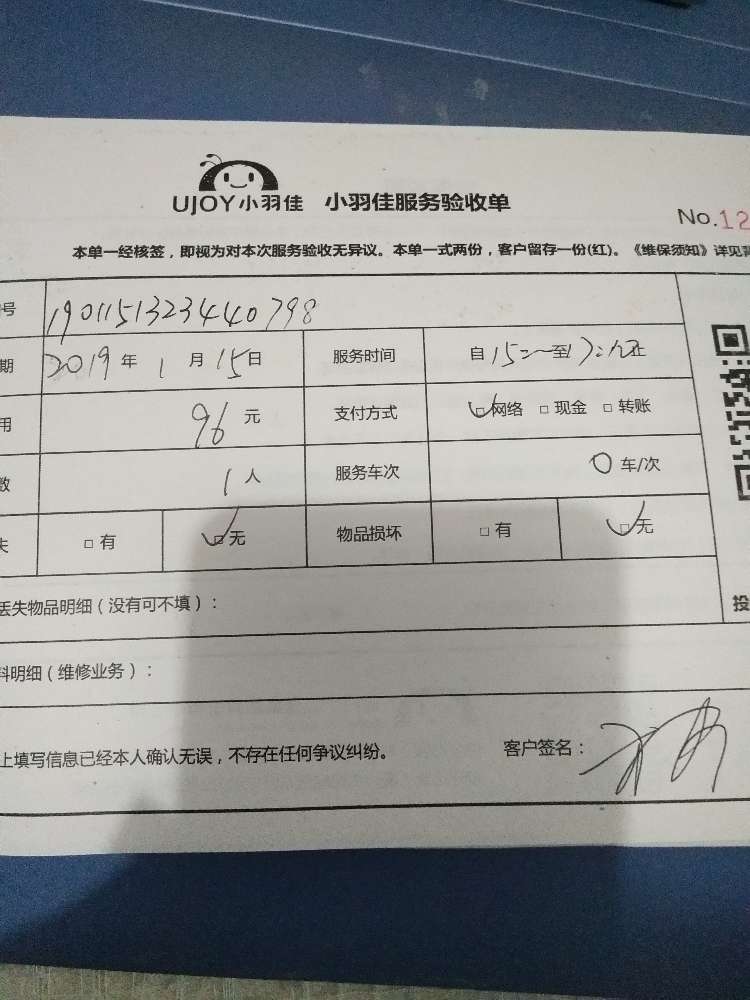 UJOY小羽佳 小羽佳服务验收单
No.12
本单一经核签，即视为对本次服务验收无异议。本单一式两份，客户留存一份(红)。《维保须知》详见背
号 19011513234440798
期 2019年1月15日 服务时间 自15:至17:止
用 96元 支付方式 ☑网络 □现金 □转账
数 1人 服务车次 0车/次
失 □有 ☑无 物品损坏 □有 ☑无
丢失物品明细（没有可不填）：
投
料明细（维修业务）：
上填写信息已经本人确认无误，不存在任何争议纠纷。 客户签名：